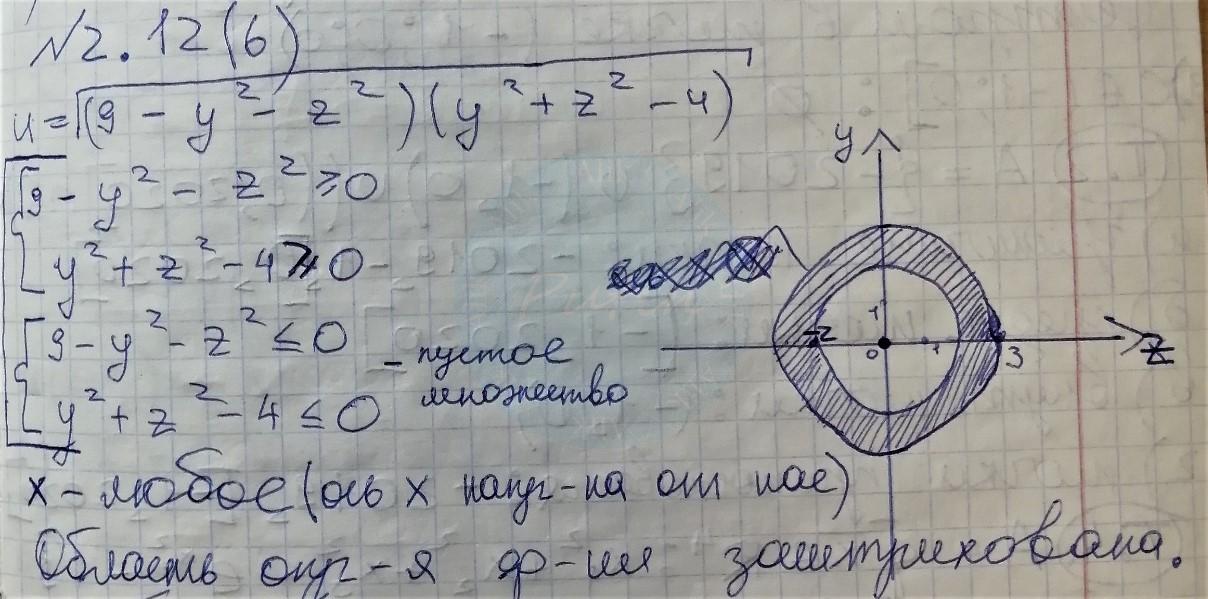 №2.12(б)
u=√(9-y²-z²)(y²+z²-4)
9-y²-z²≥0
y²+z²-4≥0
9-y²-z²≤0
y²+z²-4≤0
- пустое
множество
y
1
-2
0
1
3
z
x-любое(ось x напр-на от нас)
Область опр-я ф-ии заштрихована.